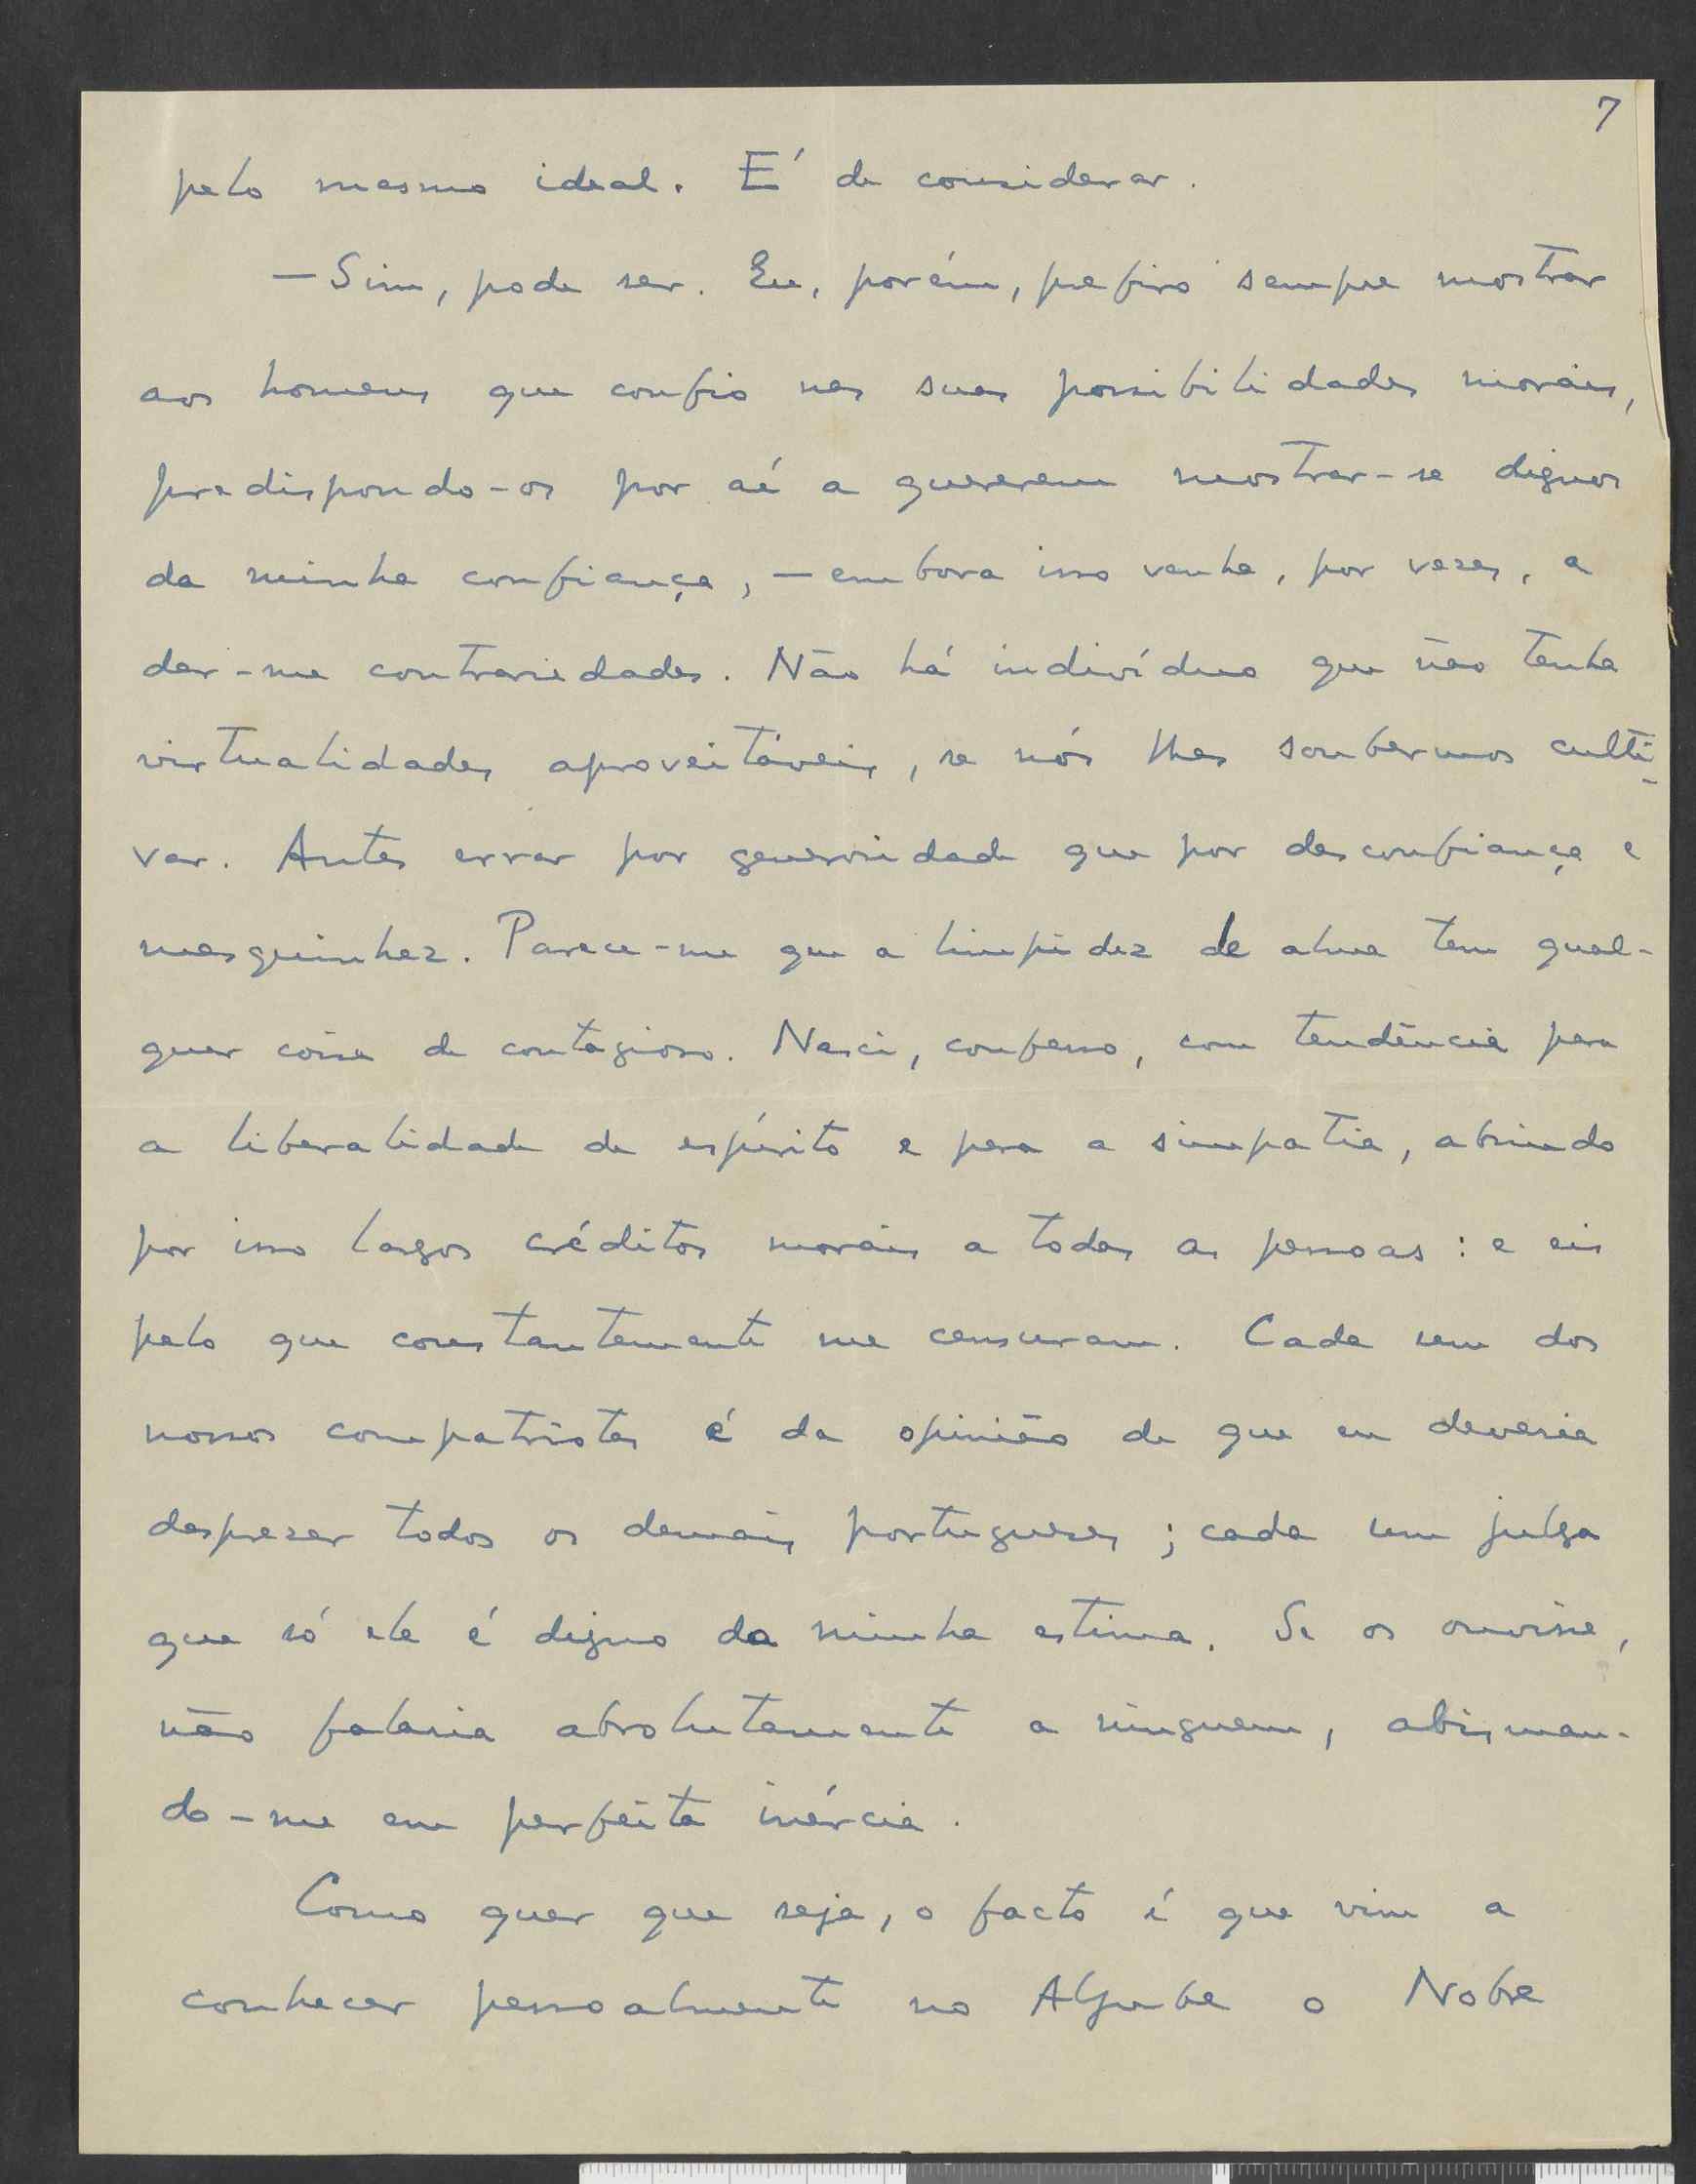 7
pelo mesmo ideal. É de considerar.
— Sim, pode ser. Eu, porém, prefiro sempre mostrar
aos homens que confio nas suas possibilidades morais,
predispondo-os por aí a quererem mostrar-se dignos
da minha confiança, — embora isso venha, por vezes, a
dar-me contrariedades. Não há indivíduo que não tenha
virtualidades aproveitáveis, se nós lhas soubermos culti-
var. Antes errar por generosidade que por desconfiança e
mesquinhez. Parece-me que a limpidez de alma tem qual-
quer coisa de contagioso. Nasci, confesso, com tendência para
a liberalidade de espírito e para a simpatia, abrindo
por isso largos créditos morais a todas as pessoas: e eis
pelo que constantemente me censuram. Cada um dos
nossos compatriotas é da opinião de que eu deveria
desprezar todos os demais portugueses; cada um julga
que só ele é digno da minha estima. Se os ouvisse,
não falaria absolutamente a ninguem, abisman-
do-me em perfeita inércia.
Como quer que seja, o facto é que vim a
conhecer pessoalmente no Aljube o Nobre